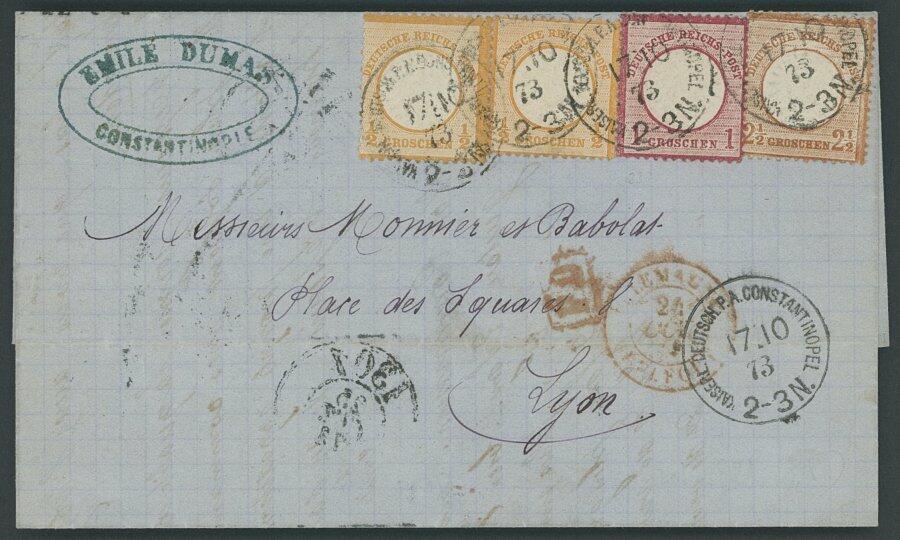 EMILE DUMAS
CONSTANTINOPLE
DEUTSCHE REICHS-POST
½ ½
GROSCHEN
17.10
73
2-3N.
DEUTSCHE REICHS-POST
½ ½
GROSCHEN
10
73
2-3N.
DEUTSCHE REICHS-POST
1 1
GROSCHEN
17.10
73
2-3N.
DEUTSCHE REICHS-POST
2½ 2½
GROSCHEN
73
2-3N.
Messieurs Monnier et Babolat
Place des Squares
Lyon
PD
24
OCT
BELFORT
KAISERL. DEUTSCH. P.A. CONSTANTINOPEL
17.10
73
2-3N.